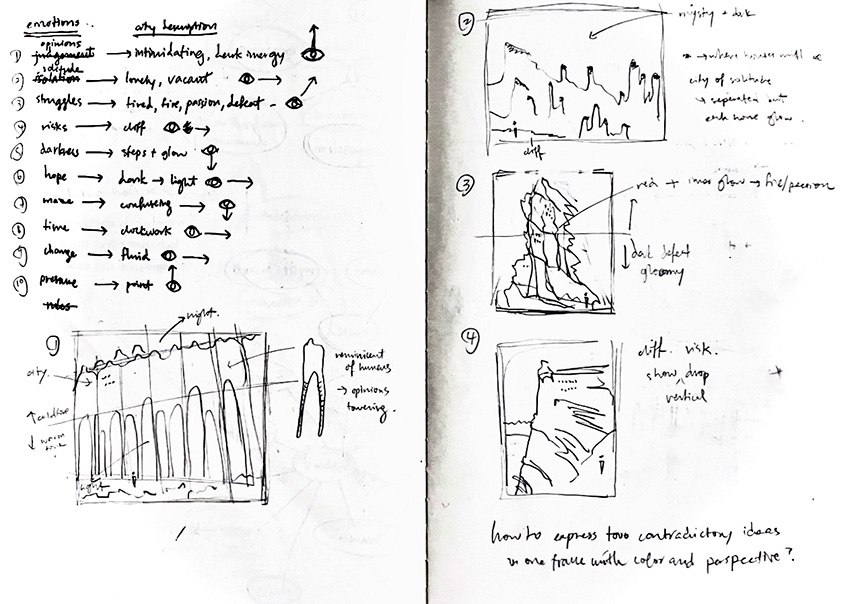 emotions..
city description
opinions
① judgement → intimidating, dark energy
solitude
② isolation → lonely, vacant →
③ struggles → tired, fire, passion, defeat -
④ risks → cliff →
⑤ darkness → steps + glow
⑥ hope → dark → light →
⑦ maze → confusing →
⑧ time → clockwork →
⑨ change → fluid →
⑩ pressure → point
night.
city
reminicent
of humans
→ opinions
towering.
↑
↓ warm
light
② mysty + dark
→ where houses
city of solitude
↳ seperated but
each home glow.
cliff
③ red + inner glow → fire/passion
↓ dark defeat
gloomy
④
cliff. risk.
show drop
vertical
how to express two contradictory ideas
in one frame with color and perspective?